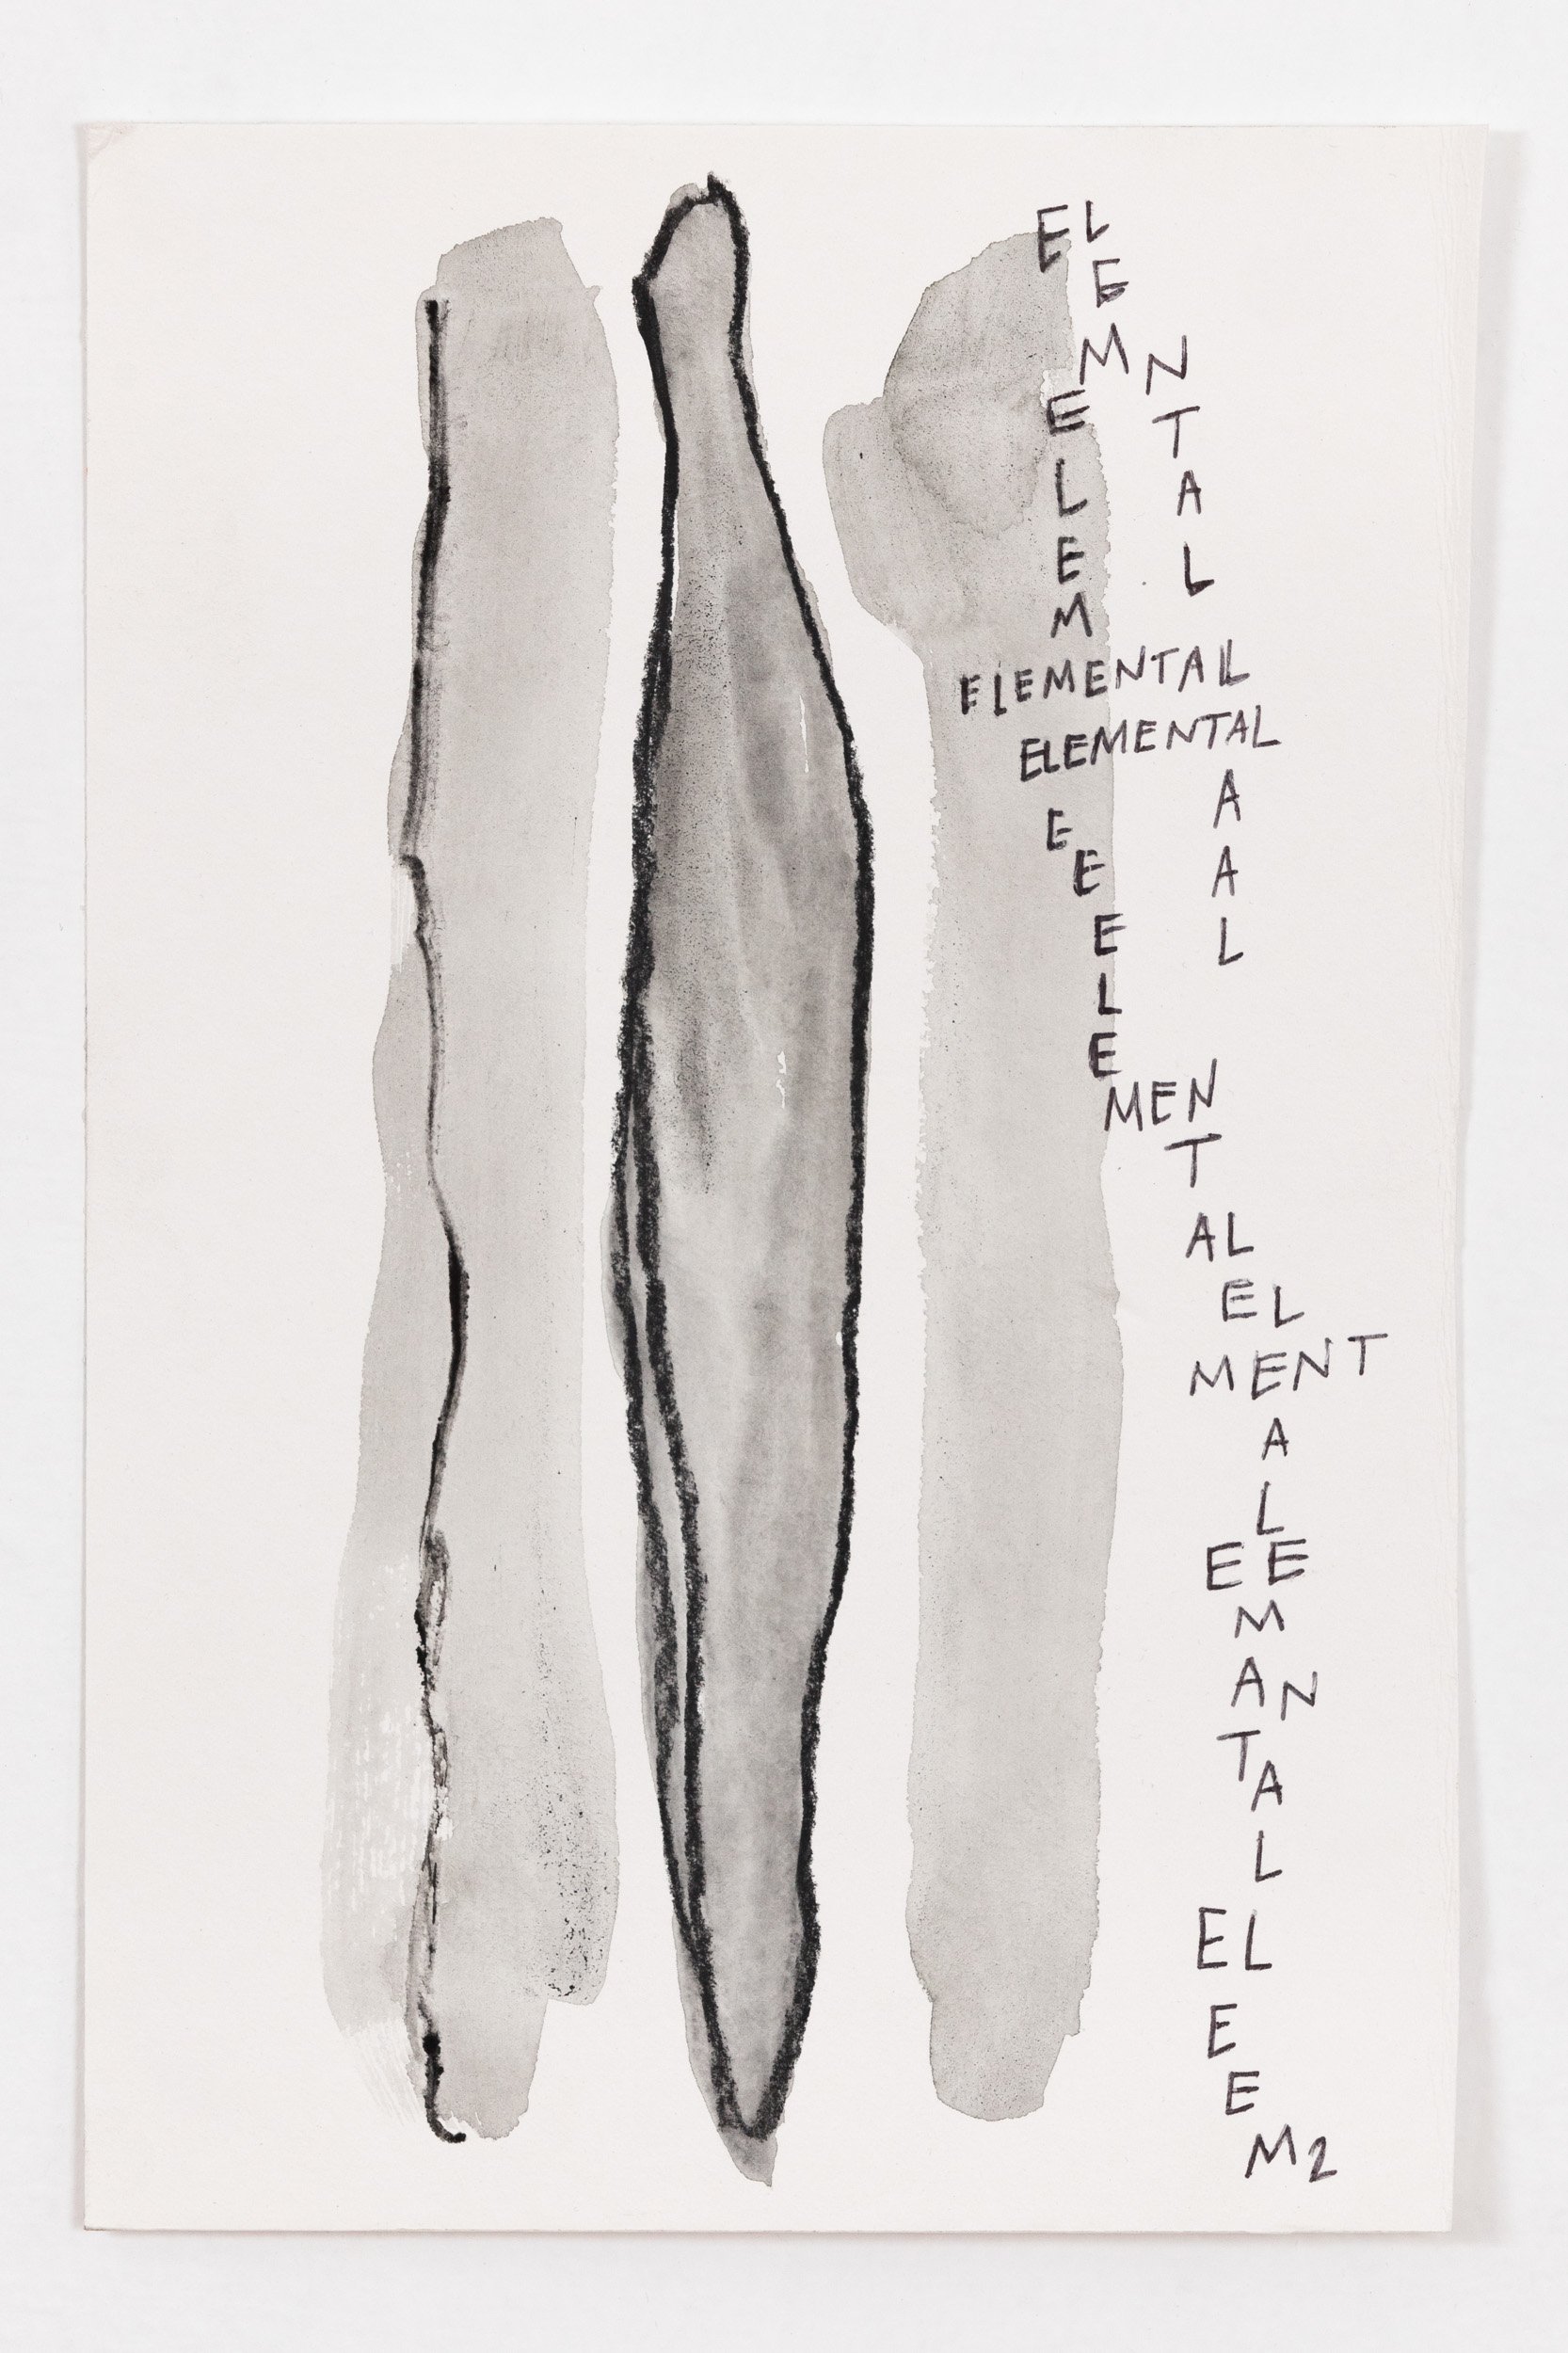 EL
E
M N
E T
L A
E L
M
ELEMENTALL
ELEMENTAL
A
E
E A
E L
L
E
MEN
T
AL
EL
MENT
A
L
E E
M
A N
T
A
L
EL
E
E
M2